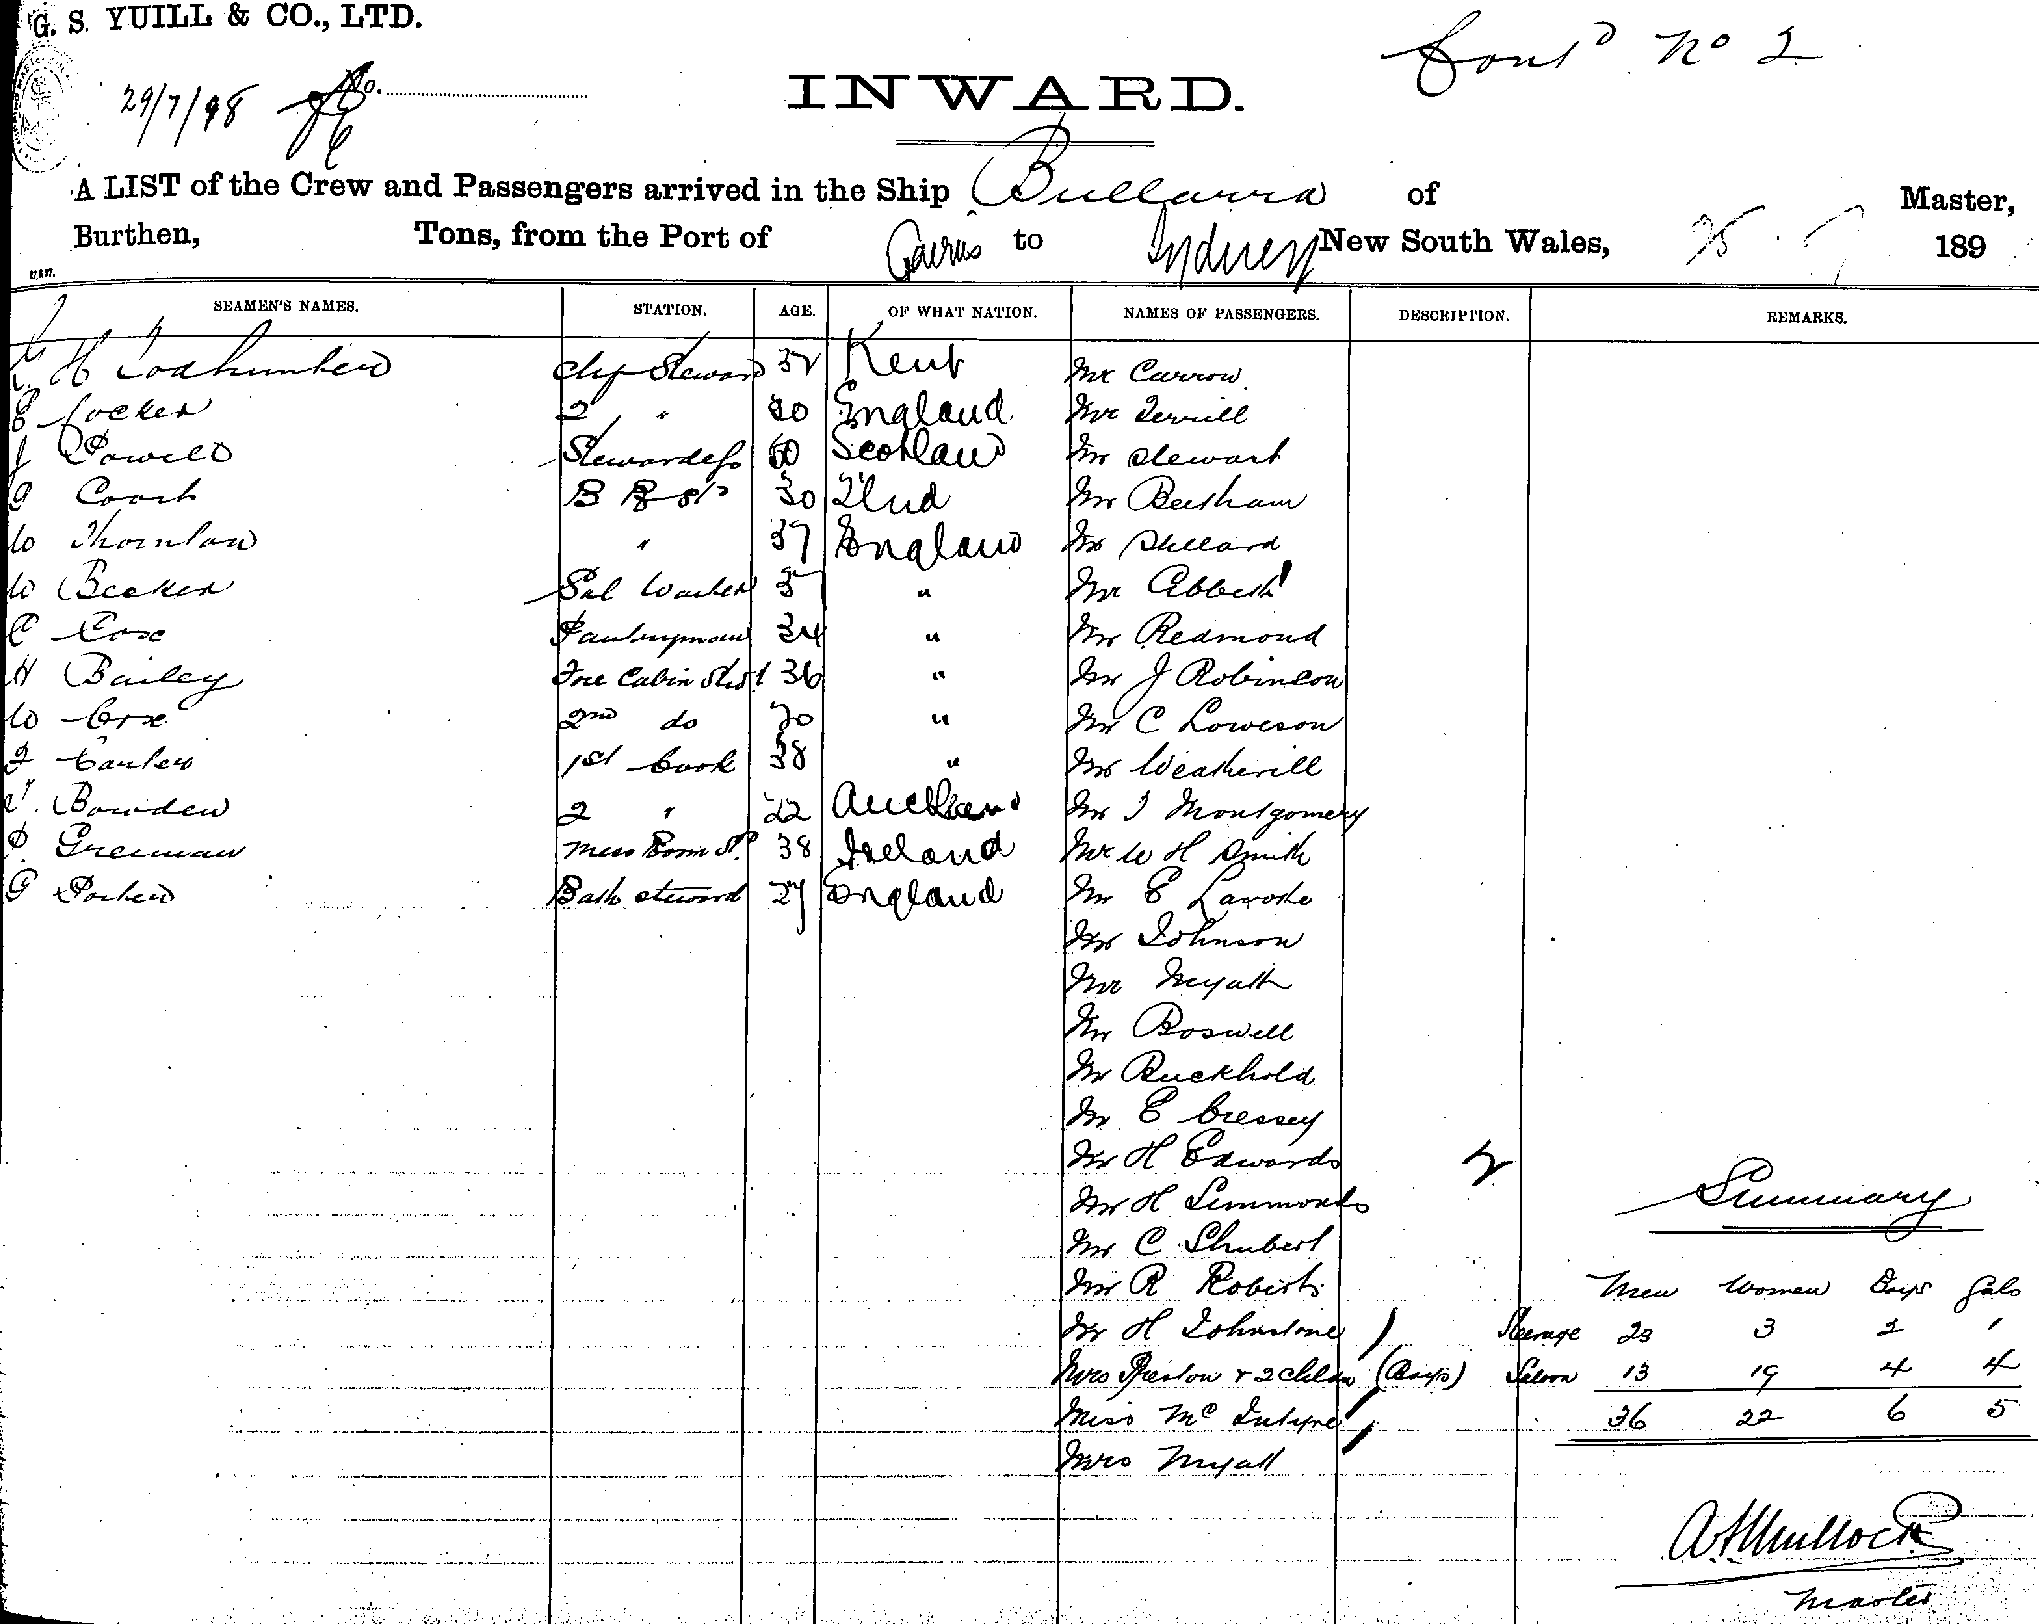 G. S. YUILL & CO., LTD.
Cont'd No 2
29/7/98 No.
INWARD.
A LIST of the Crew and Passengers arrived in the Ship Bullarra of Master,
Burthen, Tons, from the Port of Cairns to Sydney New South Wales, 25 . 7 189
SEAMEN'S NAMES. STATION. AGE. OF WHAT NATION. NAMES OF PASSENGERS. DESCRIPTION. REMARKS.
H Todhunter Chf Steward 32 Kent Mr Carrow
E Cocker 2 " England Mr Terrill
J Powell Stewardess 50 Scotland Mr Stewart
G Couch B R St 30 Zlnd Mr Beetham
W Thornlow " 37 England Mr Sillard
W Becker Sal Waiter " Mr Abbett
C Cox Pantryman 34 " Mr Redmond
H Bailey Fore Cabin Std 36 " Mr J Robinson
W Cox 2nd do 20 " Mr C Loweson
F Carter 1st Cook 38 " Mr Weatherill
Bowden 2 " 22 Auckland Mr J Montgomery
P. Greenaw Mess Room St. 38 Ireland Mr W H Smith
G Parker Bath Steward 27 England Mr E Laroche
Mr Johnson
Mr Myatt
Mr Boswell
Mr Buckhold
Mr E Cressey
Mr H Edwards 2
Mr H Simmonds
Mr C Shubert
Mr R Roberts
Mr H Johnstone
Mrs Preston + 2 Chldn (Boys)
Miss McIntyre
Mrs Myatt
Summary
Men Women Boys Gals
Steerage 23 3 2 1
Saloon 13 19 4 4
36 22 6 5
A. H. Mullock
Master